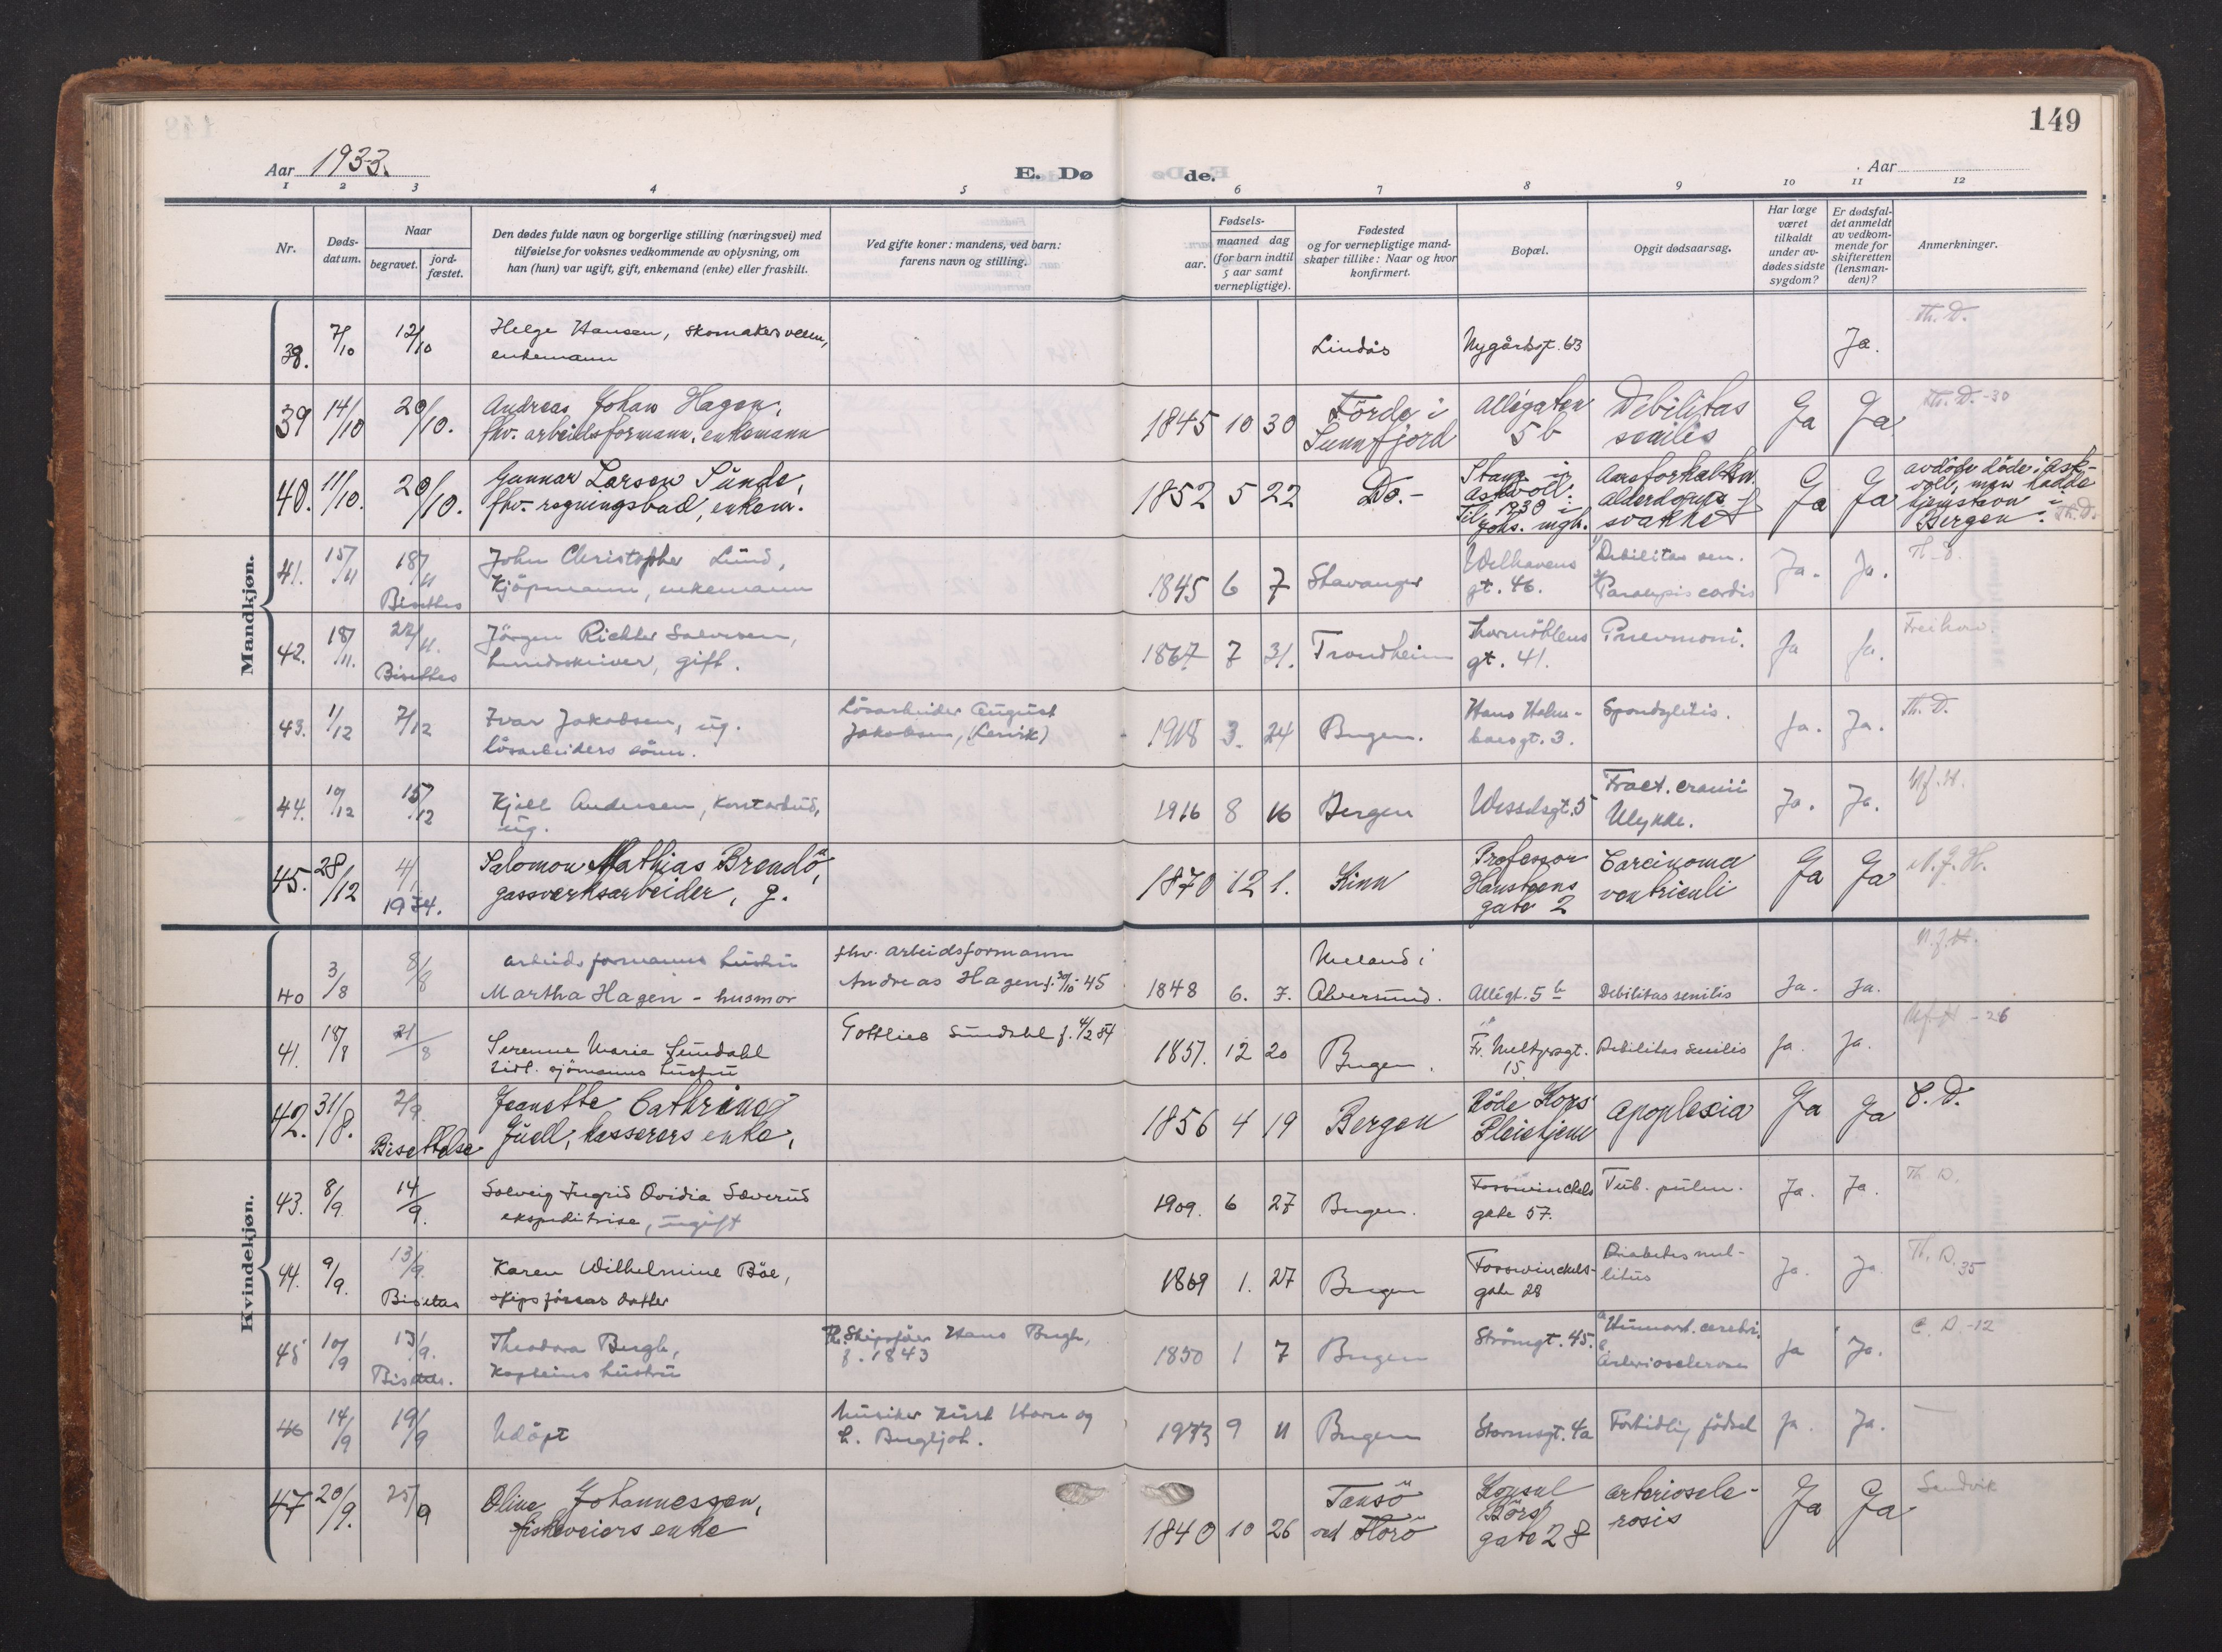 149
Aar 1933.
E. Dø
de.
Aar
1 2 3 4 5 6 7 8 9 10 11 12
Nr.
Døds-
datum.
Naar
begravet.
jord-
fæstet.
Den dødes fulde navn og borgerlige stilling (næringsvei) med
tilføielse for voksnes vedkommende av oplysning, om
han (hun) var ugift, gift, enkemand (enke) eller fraskilt.
Ved gifte koner: mandens, ved barn:
farens navn og stilling.
Fødsels-
aar.
maaned dag
(for barn indtil
5 aar samt
vernepligtige).
Fødested
og for vernepligtige mand-
skaper tillike: Naar og hvor
konfirmert.
Bopæl.
Opgit dødsaarsag.
Har læge
været
tilkaldt
under av-
dødes sidste
sygdom?
Er dødsfal-
det anmeldt
av vedkom-
mende for
skifteretten
(lensman-
den)?
Anmerkninger.
Mandkjøn.
38. 7/10 12/10 Helge Hansen, skomakersvenn,
enkemann
Lindås Nygårdsgt. 63 Ja. Th. D.
39 14/10 20/10. Andreas Johan Hagen,
fhv. arbeidsformann, enkemann
1845 10 30 Förde i
Sunnfjord
Allégaten
5 b
Debilitas
senilis
Ja Ja Th. D. -30
40. 11/10. 20/10. Gunnar Larsen Sunde,
fhv. regningsbud, enkem.
1852 5 22 Do. -
Stang i
Askvoll.
Til 1930 i
Johs. mgh.
Aareforkalkn.
alderdoms-
svakhet
Ja Ja
avdöde döde i Ask-
voll, men hadde
hjemstavn i
Bergen. Th. D.
41. 15/11 18/11
Bisettes
John Christopher Lund,
Kjöpmann, enkemann
1845 6 7 Stavanger
Welhavens
gt. 46.
1) Debilitas sen.
2) Paralysis cordis
Ja. Ja.
42. 18/11. 22/11.
Bisettes
Jörgen Richter Salvesen,
gift.
1867 7 31. Trondheim
Thormöhlens
gt. 41.
Pnevmoni.
Ja Ja.
43. 1/12 7/12 Ivar Jakobsen, ug.
lösarbeiders sönn.
Lösarbeider August
Jakobsen, (Lervik)
1918 3. 24 Bergen.
Hans Holm-
boesgt. 3.
Spondylitis.
Ja. Ja. Th. D.
44. 10/12 15/12 Kjell Andersen, kontorbud,
ug.
1916 8 16 Bergen Wesselsgt. 5
Fract. cranii
Ulykke.
Ja. Ja. N. f. H.
45. 28/12 4/1
1934.
Salomon Mathias Brendö,
gassverksarbeider, g.
1870 12 1. Kinn
Professor
Hansteens
gate 2
Carcinoma
ventriculi
Ja Ja N. f. H.
Kvindekjøn.
40 3/8 8/8 arbeidsformanns hustru
Martha Hagen - husmor
fhv. arbeidsformann
Andreas Hagen f. 30/10 45
1848 6. 7.
Alversund. Allégt. 5 b Debilitas senilis Ja. Ja. N. f. H.
41. 18/8 21/8 Serenne Marie Sundahl
tidl. sjömanns hustru
Gottlieb Sundahl f. 4/2 54
1857. 12 20 Bergen.
Fr. Meltzersgt.
15.
Debilitas senilis Ja. Ja. N. f. H - 26
42. 31/8. 2/9.
Bisettelse
Jeanette Cathrine
Juell, kasserers enke,
1856 4 19 Bergen
Röde Kors
Pleiehjem
Apoplexia Ja Ja C. D.
43. 8/9. 14/9. Solveig Ingrid Ovidia Sæverud
ekspeditrise, ugift
1909. 6 27 Bergen.
Fosswinckels
gate 57.
Tub. pulm. Ja. Ja. Th. D.
44. 9/9. 13/9.
Bisettes
Karen Wilhelmine Böe,
skipsförers datter
1869 1. 27 Bergen
Fosswinckels-
gate 28
Diabetes mel-
litus
Ja. Ja. Th. D. 35
45 10/9 13/9.
Bisettes.
Theodora Bergh,
Kapteins hustru
Fh. Skipsförer Hans Bergh,
f. 1843
1850 1 7 Bergen Strömgt. 45.
Hæmorrh. cerebri.
Arteriosclerosis
Ja Ja. C. D. -12
46 14/9 19/9 Udöpt
Musiker
1933 9 11 Bergen Stormsgt. 4a Fortidlig födsel Ja. Ja. —
47 20/9. 25/9 Oline Johannessen,
fiskeveiers enke
1840 10 26
Tansö
ved Florö
Konsul
Börs
gate 28
arteriosele-
rosis
Ja Ja Sandvik